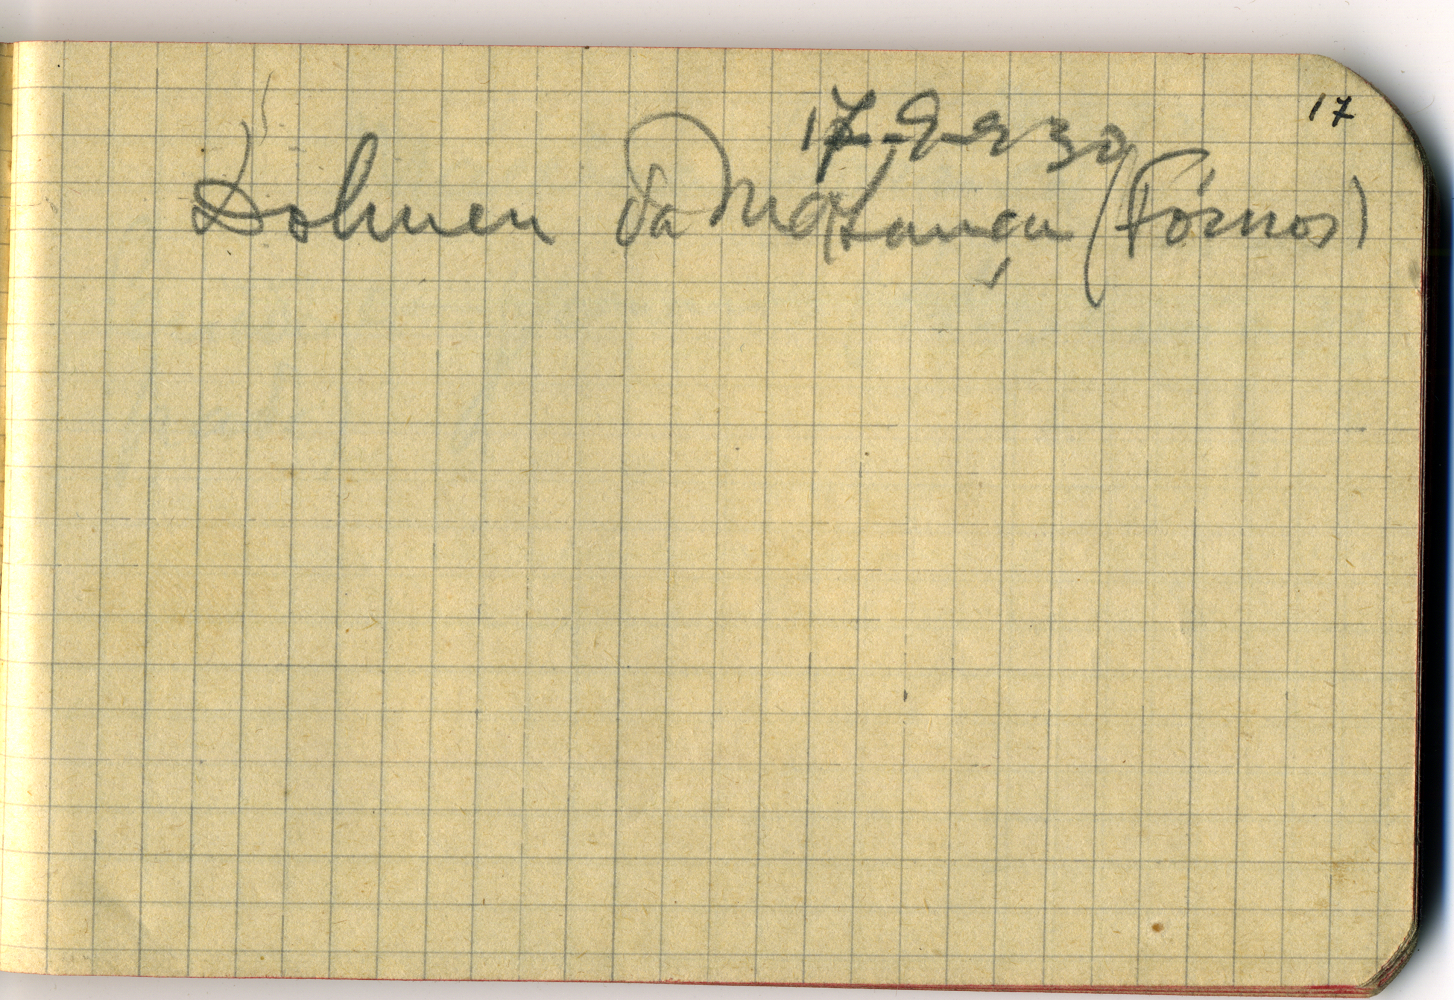 17
17-9-930
Dolmen da Matança (Fórnos)